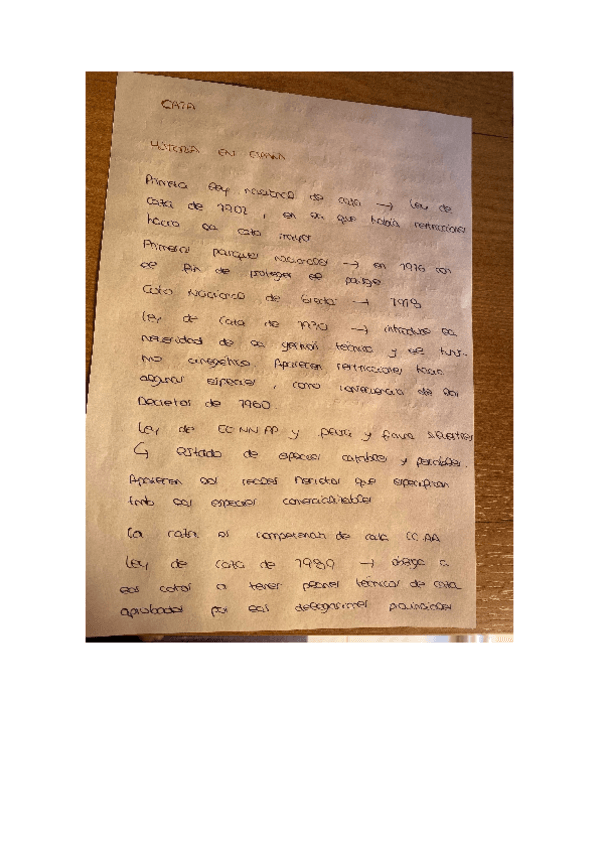 CAZA
HISTORIA EN ESPAÑA
Primera Ley nacional de caza → Ley de
caza de 1902, en la que había restricciones
hacia la caza mayor
Primeros parques nacionales → en 1916 con
el fin de proteger el paisaje
Coto Nacional de Gredos → 1918
Ley de caza de 1970 → introduce la
necesidad de la gestión técnica y el turis-
mo cinegético. Aparecen restricciones hacia
algunas especies, como consecuencia de los
Decretos de 1960.
Ley de EENNPP y flora y fauna silvestres
↳ listado de especies cazables y
Aparecen las que especifican
las especies comercializables
La caza es competencia de cada CC.AA
Ley de caza de 1989 → obliga a
los cotos a tener planes técnicos de caza
aprobados por las delegaciones provinciales